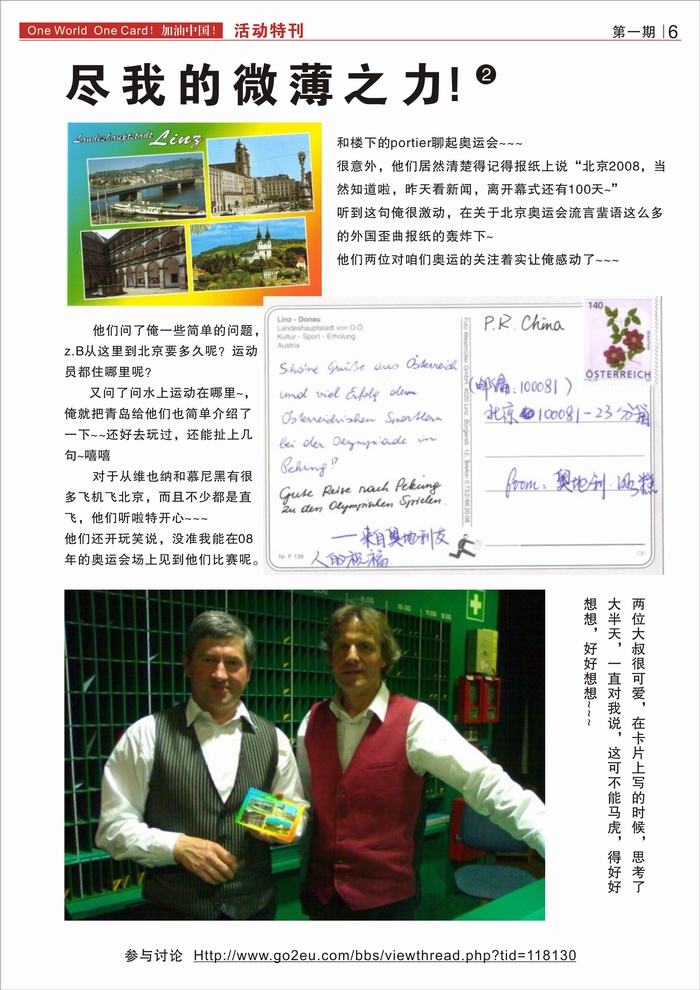 One World One Card! 加油中国! 活动特刊
第一期 6
尽我的微薄之力! ❷
Landeshauptstadt Linz
和楼下的portier聊起奥运会~~~
很意外，他们居然清楚得记得报纸上说“北京2008，当
然知道啦，昨天看新闻，离开幕式还有100天~”
听到这句俺很激动，在关于北京奥运会流言蜚语这么多
的外国歪曲报纸的轰炸下~
他们两位对咱们奥运的关注着实让俺感动了~~~
他们问了俺一些简单的问题，
z.B从这里到北京要多久呢？运动
员都住哪里呢？
又问了问水上运动在哪里~，
俺就把青岛给他们也简单介绍了
一下~~还好去玩过，还能扯上几
句~嘻嘻
对于从维也纳和慕尼黑有很
多飞机飞北京，而且不少都是直
飞，他们听啦特开心~~~
他们还开玩笑说，没准我能在08
年的奥运会场上见到他们比赛呢。
Linz - Donau
Landeshauptstadt von O.Ö.
Kultur - Sport - Erholung
Austria
Schöne Grüße aus Österreich
und viel Erfolg dem
Österreichischen Sportlern
bei der Olympiade in
Peking!
Gute Reise nach Peking
zu den Olympischen Spielen.
——来自奥地利友
人的祝福
Nr. P 139
P.R. China
140
ÖSTERREICH
(邮编:100081)
北京 100081-23分箱
from: 奥地利·冰糕
两位大叔很可爱，在卡片上写的时候，思考了
大半天，一直对我说，这可不能马虎，得好好
想想，好好想想~~~
参与讨论 Http://www.go2eu.com/bbs/viewthread.php?tid=118130